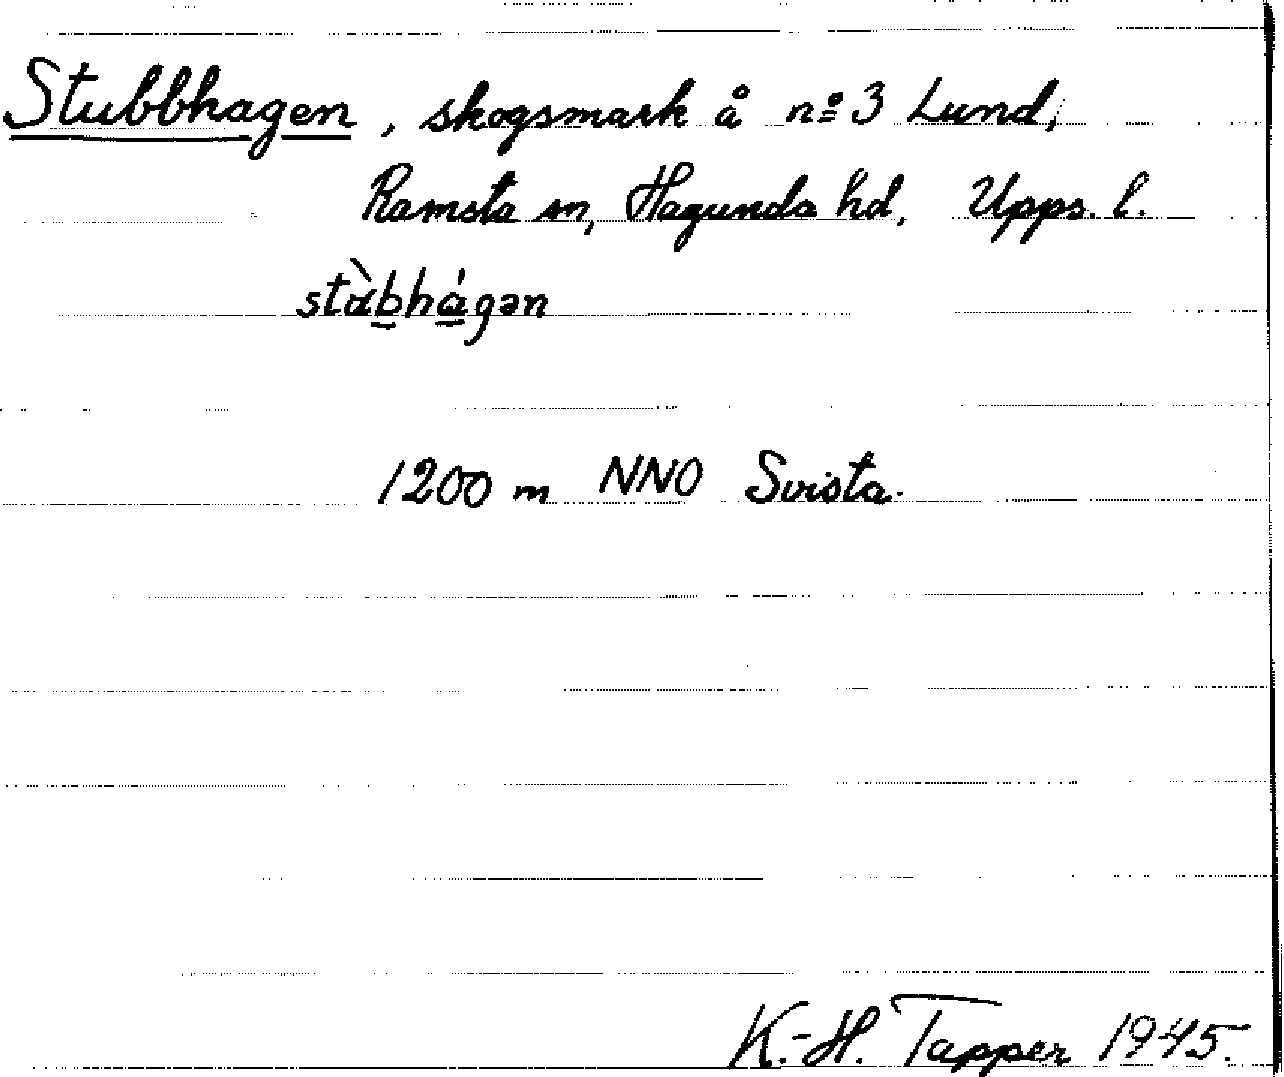 Stubbhagen, skogsmark å nº 3 Lund,
Ramsta sn, Hagunda hd, Upps. l.
1200 m NNO Svista.
K.-H. Tapper 1945.